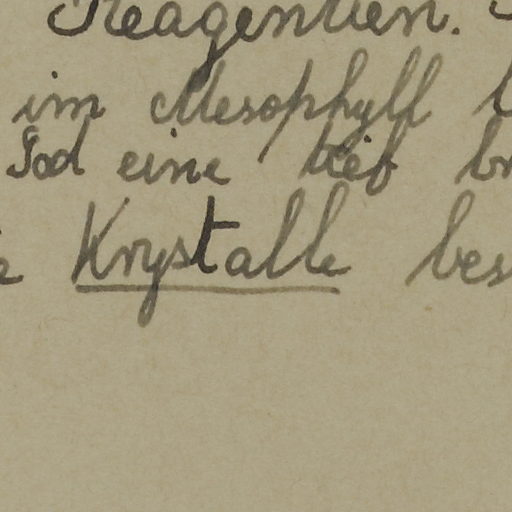 Reagentien.
im Mesophyll
Jod eine tief
Krystalle bes